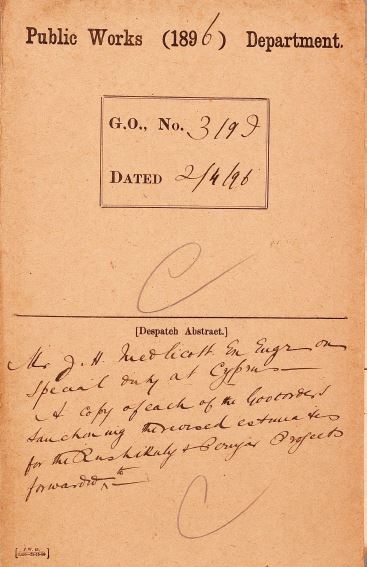 Public Works (1896) Department.
G.O., No. 319 I
DATED 2/4/96
[Despatch Abstract.]
Mr J. H. Medlicott Ex Engr on
special duty at Cyprus
A copy of each of the Gov orders
sanctioning the revised estimates
for the Rushikulya & Periyar Projects
forwarded to